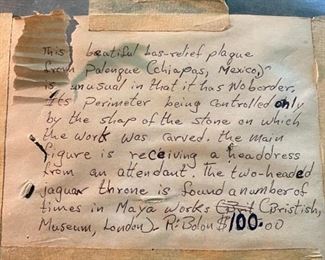 This beatiful bas-relief plaque
from Palenque (Chiapas, Mexico),
is unusual in that it has No border,
Its Perimeter being controlled only
by the shap of the stone on which
the work was carved. the main
figure is receiving a headdress
from an attendant. The two-headed
jaguar throne is found a number of
times in Maya works (Bristish,
Museum, London). R. Bolon $100.00